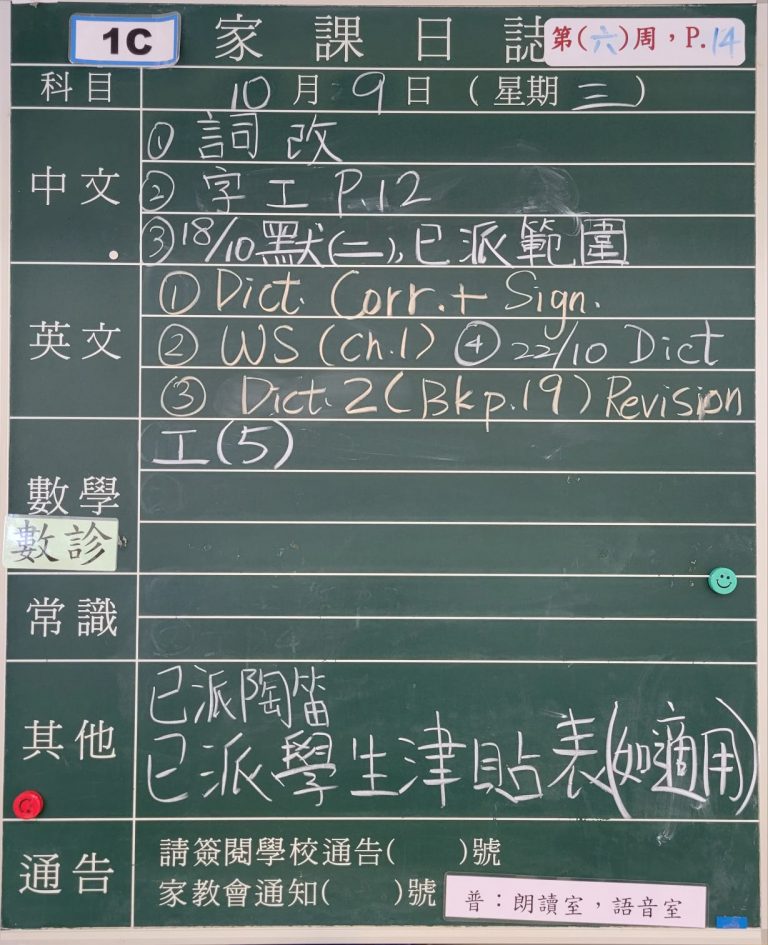 1C 家課日誌 第(六)周，P.14
科目 10月9日(星期三)
中文
① 詞改
② 字工 P.12
③ 18/10默(二),已派範圍
英文
① Dict. Corr. + Sign.
② WS (Ch.1) ④ 22/10 Dict
③ Dict. 2 (Bk p.19) Revision
數學
工(5)
數診
常識
其他
已派陶笛
已派學生津貼表(如適用)
通告
請簽閱學校通告( )號
家教會通知( )號
普：朗讀室，語音室